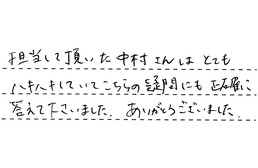 担当して頂いた中村さんはとても
ハキハキしていてこちらの疑問にも正確に
答えて下さいました。ありがとうございました。